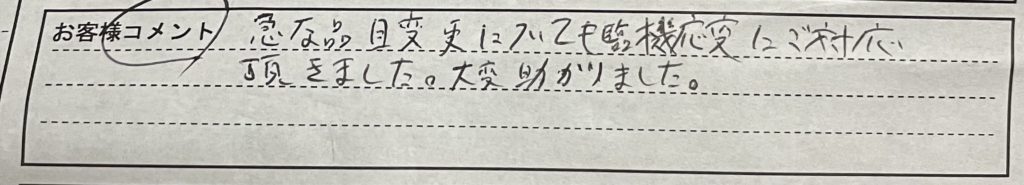 お客様コメント 急な品目変更についても臨機応変にご対応
頂きました。大変助かりました。